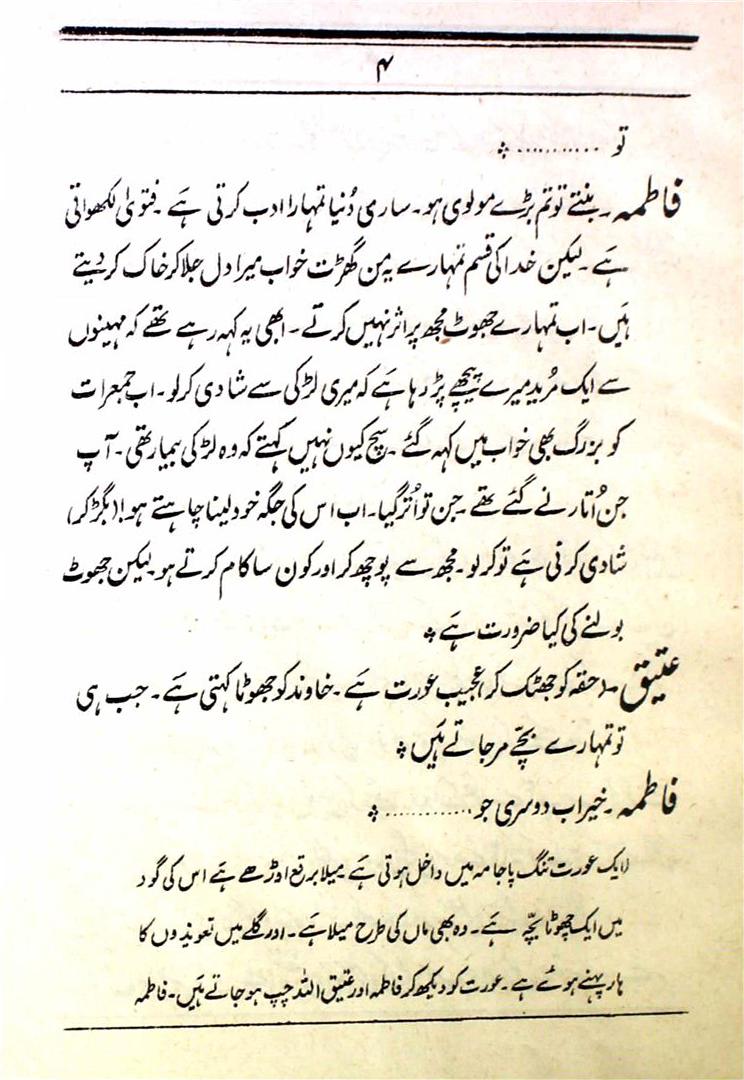 ۴
تو ...........٭
فاطمہ۔ بنتے تو تم بڑے مولوی ہو۔ ساری دُنیا تمہارا ادب کرتی ہے ۔ فتویٰ لکھواتی
ہے۔ لیکن خدا کی قسم تمہارے یہ من گھڑت خواب میرا دل جلا کر خاک کر دیتے
ہیں۔ اب تمہارے جھوٹ مجھ پر اثر نہیں کرتے۔ ابھی یہ کہہ رہے تھے کہ مہینوں
سے ایک مُرید میرے پیچھے پڑ رہا ہے کہ میری لڑکی سے شادی کر لو۔ اب جمعرات
کو بزرگ بھی خواب میں کہہ گئے ۔ سچ کیوں نہیں کہتے کہ وہ لڑکی بیمار تھی۔ آپ
جن اُتارنے گئے تھے ۔ جن تو اُتر گیا۔ اب اس کی جگہ خود لینا چاہتے ہو! (بگڑ کر)
شادی کرنی ہے تو کر لو ۔ مجھ سے پوچھ کر اور کون سا کام کرتے ہو لیکن جھوٹ
بولنے کی کیا ضرورت ہے ٭
عتیق ۔ (حقہ کو جھٹک کر) عجیب عورت ہے ۔ خاوند کو جھوٹا کہتی ہے ۔ جب ہی
تو تمہارے بچّے مر جاتے ہیں ٭
فاطمہ ۔ خیر اب دوسری جو ............ ٭
(ایک عورت تنگ پاجامہ میں داخل ہوتی ہے میلا برقع اوڑھے ہے اس کی گود
میں ایک چھوٹا بچّہ ہے ۔ وہ بھی ماں کی طرح میلا ہے ۔ اور گلے میں تعویذوں کا
ہار پہنے ہوئے ہے ۔ عورت کو دیکھ کر فاطمہ اور عتیق اللہ چپ ہو جاتے ہیں۔ فاطمہ